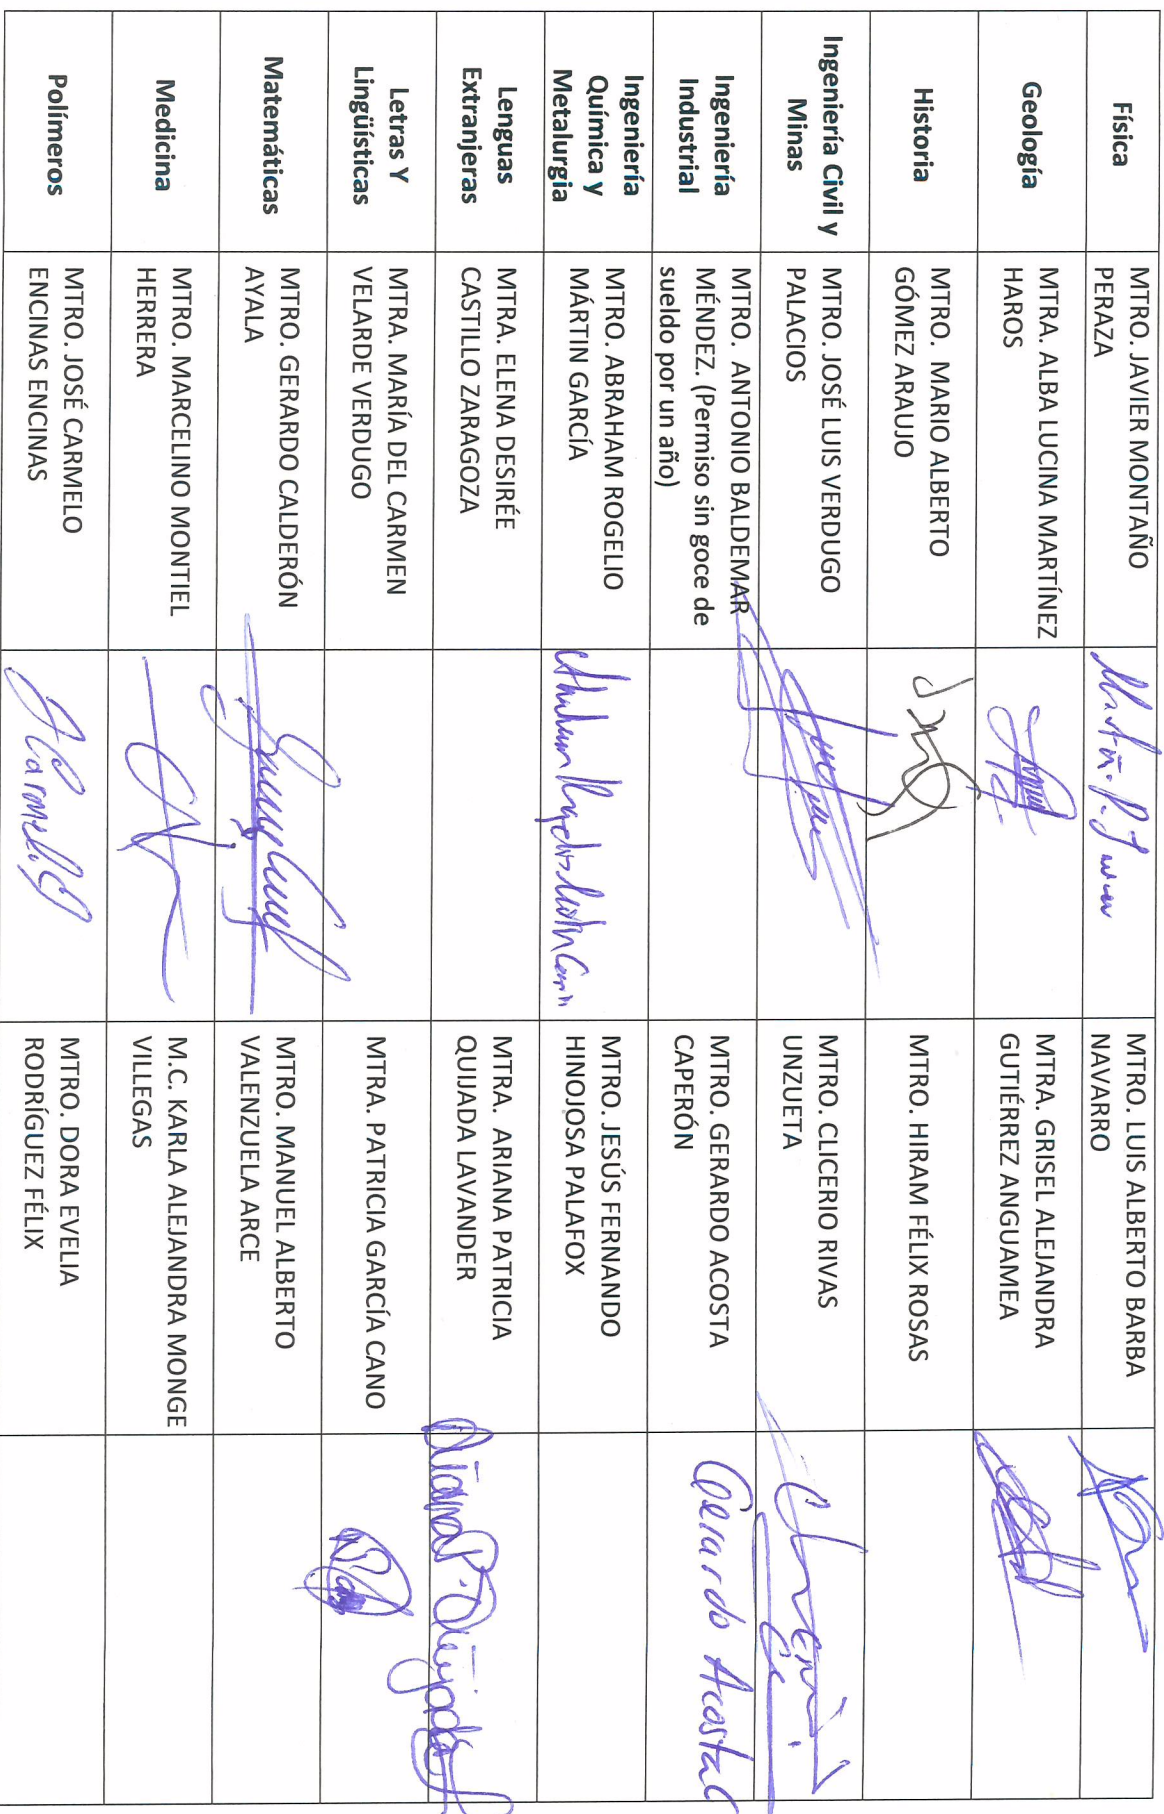 Física
MTRO. JAVIER MONTAÑO
PERAZA
MTRO. LUIS ALBERTO BARBA
NAVARRO
Geología
MTRA. ALBA LUCINA MARTÍNEZ
HAROS
MTRA. GRISEL ALEJANDRA
GUTIÉRREZ ANGUAMEA
Historia
MTRO. MARIO ALBERTO
GÓMEZ ARAUJO
MTRO. HIRAM FÉLIX ROSAS
Ingeniería Civil y
Minas
MTRO. JOSÉ LUIS VERDUGO
PALACIOS
MTRO. CLICERIO RIVAS
UNZUETA
Ingeniería
Industrial
MTRO. ANTONIO BALDEMAR
MÉNDEZ. (Permiso sin goce de
sueldo por un año)
MTRO. GERARDO ACOSTA
CAPERÓN
Gerardo Acosta C
Ingeniería
Química y
Metalurgia
MTRO. ABRAHAM ROGELIO
MÁRTIN GARCÍA
MTRO. JESÚS FERNANDO
HINOJOSA PALAFOX
Lenguas
Extranjeras
MTRA. ELENA DESIRÉE
CASTILLO ZARAGOZA
MTRA. ARIANA PATRICIA
QUIJADA LAVANDER
Ariana P. Quijada
Letras Y
Lingüísticas
MTRA. MARÍA DEL CARMEN
VELARDE VERDUGO
MTRA. PATRICIA GARCÍA CANO
Matemáticas
MTRO. GERARDO CALDERÓN
AYALA
MTRO. MANUEL ALBERTO
VALENZUELA ARCE
Medicina
MTRO. MARCELINO MONTIEL
HERRERA
M.C. KARLA ALEJANDRA MONGE
VILLEGAS
Polímeros
MTRO. JOSÉ CARMELO
ENCINAS ENCINAS
MTRO. DORA EVELIA
RODRÍGUEZ FÉLIX